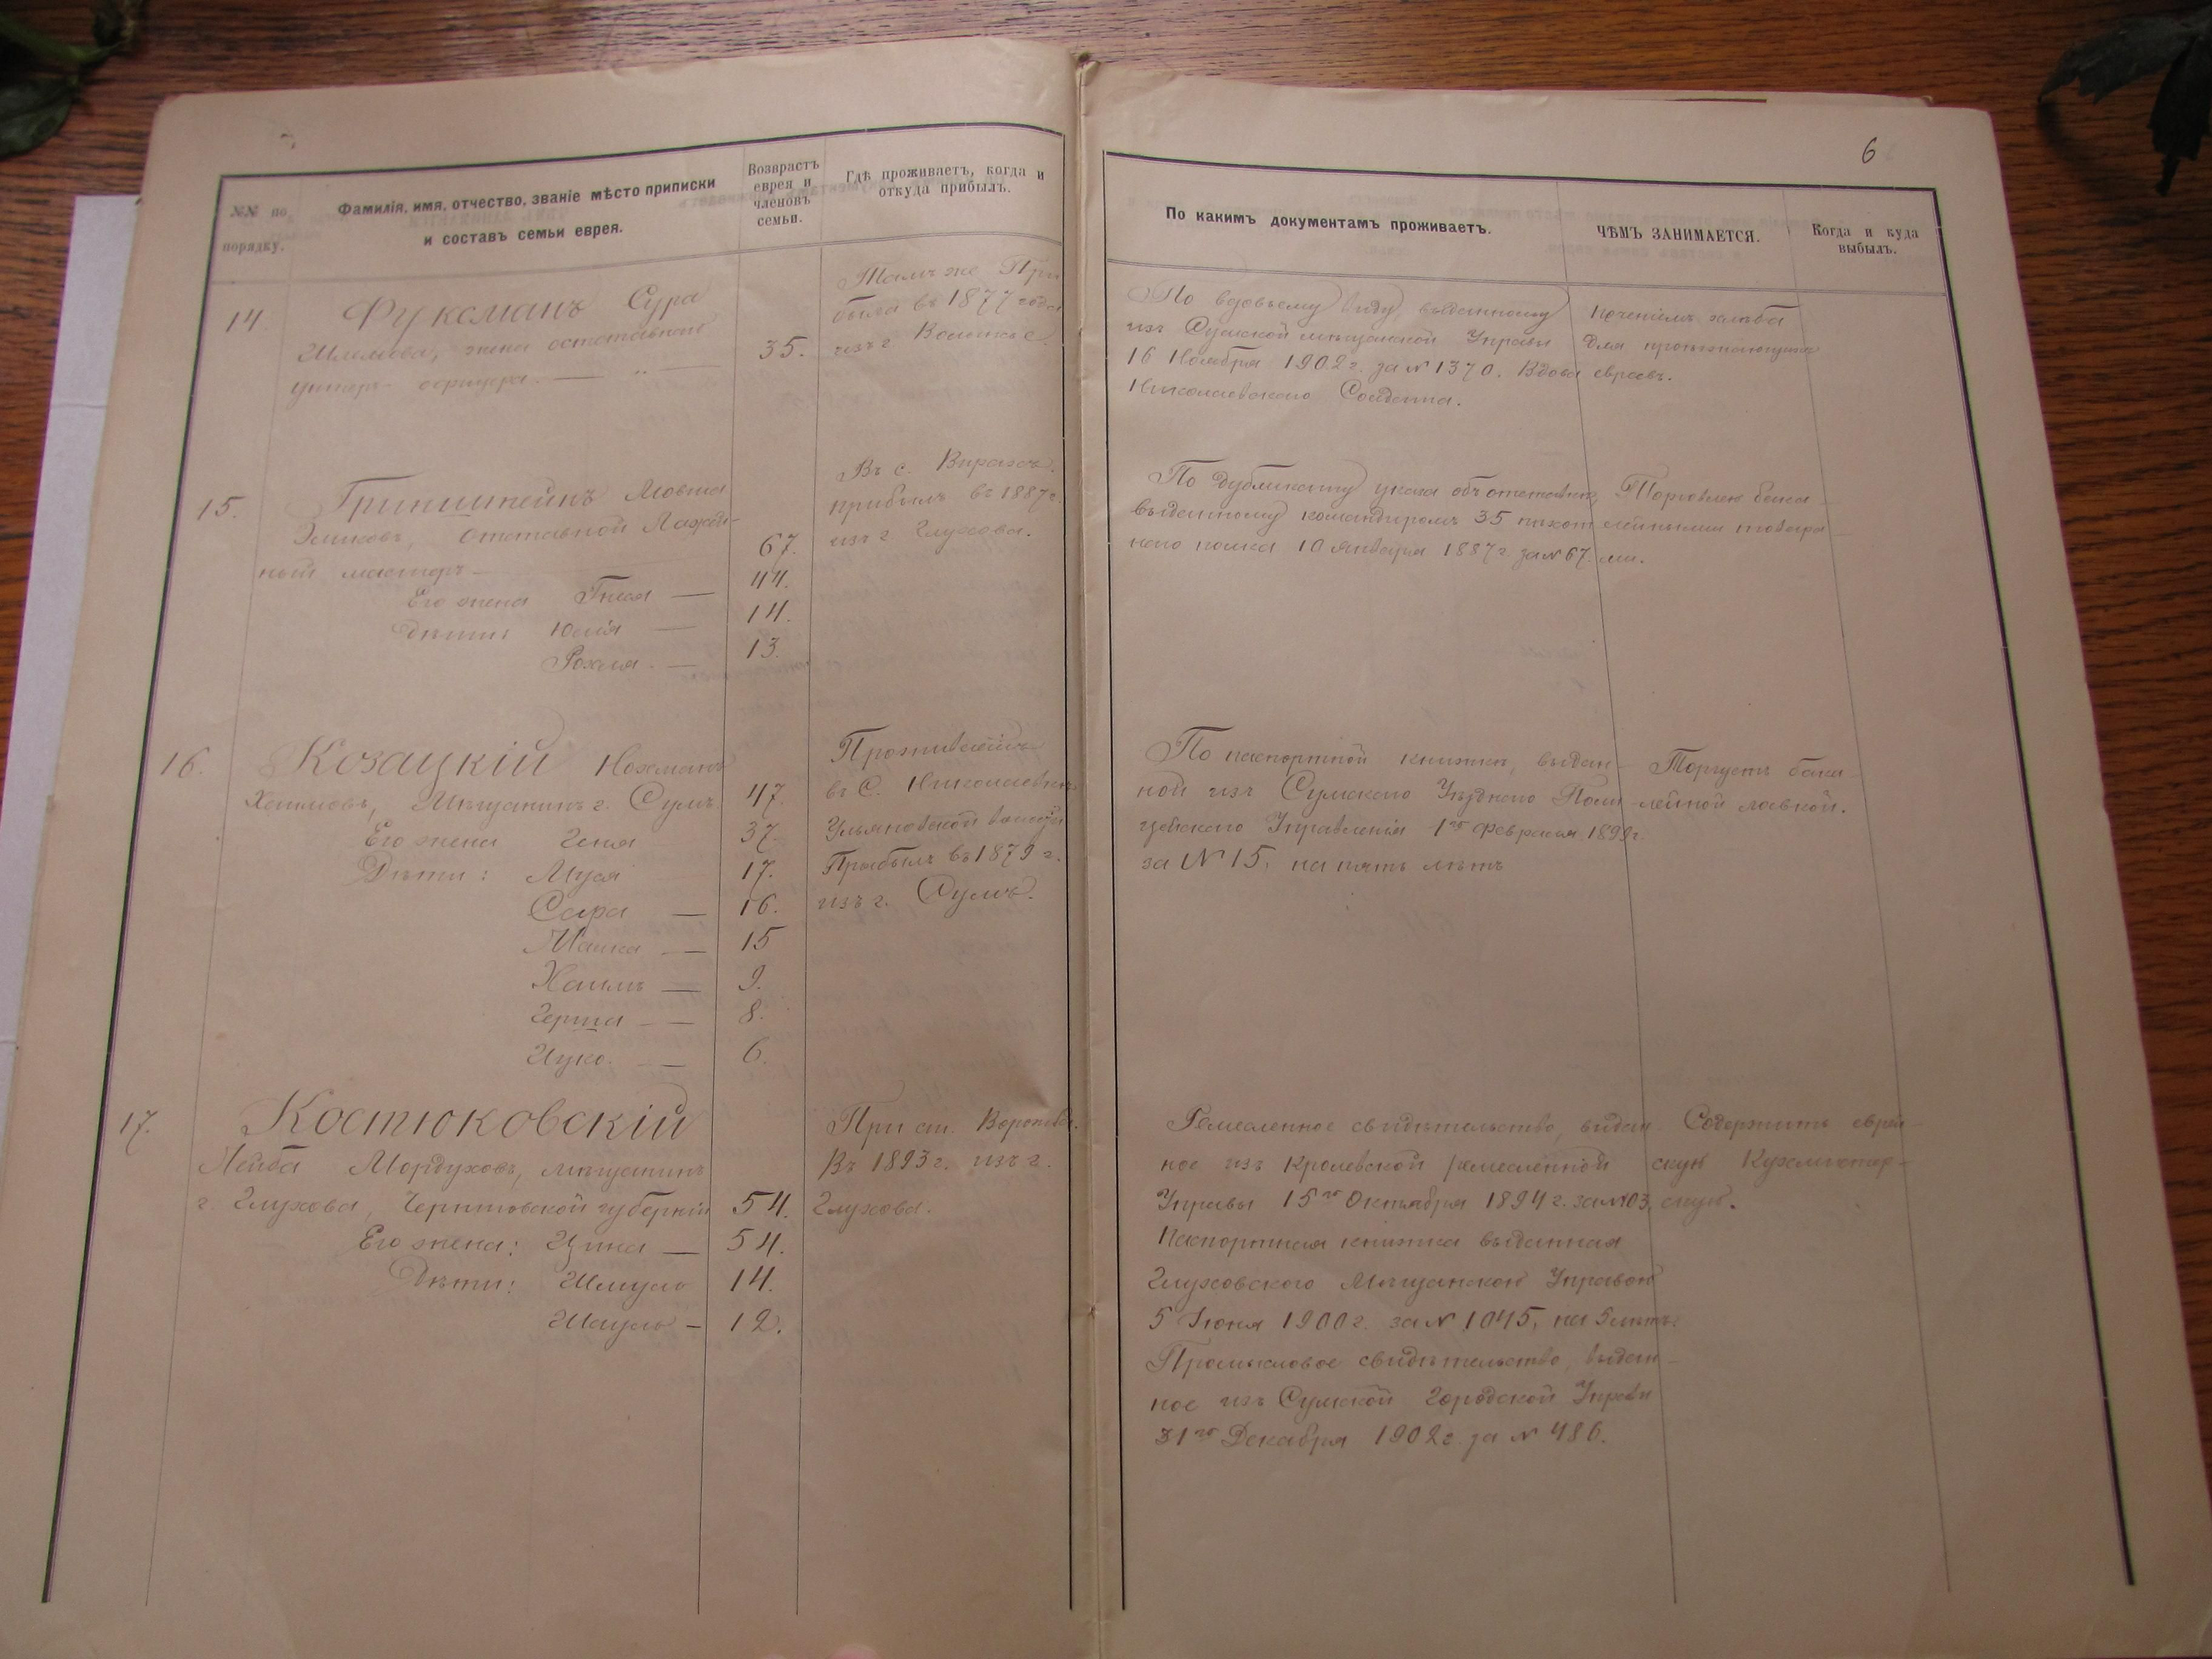 6
№№ по порядку.
Фамилія, имя, отчество, званіе мѣсто приписки
и составъ семьи еврея.
Возврастъ
еврея и
членовъ
семьи.
Гдѣ проживаетъ, когда и
откуда прибылъ.
По какимъ документамъ проживаетъ.
ЧѢМЪ ЗАНИМАЕТСЯ.
Когда и куда
выбылъ.
14
Фуксманъ Сура
Шлемова, жена отставного
унтеръ-офицера. — " —
35.
Тамъ же При
была въ 1877 года
изъ г.
По вдовьему виду, выданному
изъ Сумской мѣщанской Управы
16 Ноября 1902 г. за № 1370. Вдова
Николаевскаго Солдата.
печеніемъ хлѣба
для проѣзжающихъ
евреевъ.
15.
Гринштейнъ Мовша
отставной Лазарет-
ный мастеръ —
67.
Его жена Гнеся —
44.
Дѣти: Юлія —
14.
Рохля. —
13.
Въ с.
прибылъ въ 1887 г.
изъ г. Глухова.
По дубликату указа объ отставкѣ,
выданному командиромъ 35 пѣхот
наго полка 10 Января 1887 г за № 67.
Торговлею бака-
лейными товара-
ми.
16.
Козацкій Нохманъ
Хаимовъ, Мѣщанинъ г. Сумъ
47.
Его жена Геня
37.
Дѣти: Муся
17.
Сара —
16.
Малка —
15
Хаимъ —
9.
Герша —
8.
Ицко. —
6.
Проживаетъ
въ С. Николаевкѣ
Ульяновской волости
Прибылъ въ 1879 г.
изъ г. Сумъ.
По паспортной книжкѣ, выдан-
ной изъ Сумскаго Уѣзднаго Поли
цейскаго Управленія 1го Февраля 1899 г
за № 15, на пять лѣтъ
Торгуетъ бака-
лейной лавкой.
17.
Костюковскій
Лейба Мордуховъ, мѣщанинъ
г. Глухова, Черниговской губерніи
54.
Его жена: Цина —
54.
Дѣти: Шмуль
14.
Шауль —
12.
При ст. Ворожба.
Въ 1893 г. изъ г.
Глухова.
Ремесленное свидѣтельство, выдан
ное изъ Кролевской ремесленной
Управы 15го Октября 1894 г. за № 103,
Паспортная книжка выданная
Глуховскою Мѣщанской Управой
5 Іюня 1900 г. за № 1045, на 5 лѣтъ.
Промысловое свидѣтельство, выдан-
ное изъ Сумской Городской Управы
31го Декабря 1902 г. за № 486.
Содержитъ еврей-
скую Кухмистер-
скую.